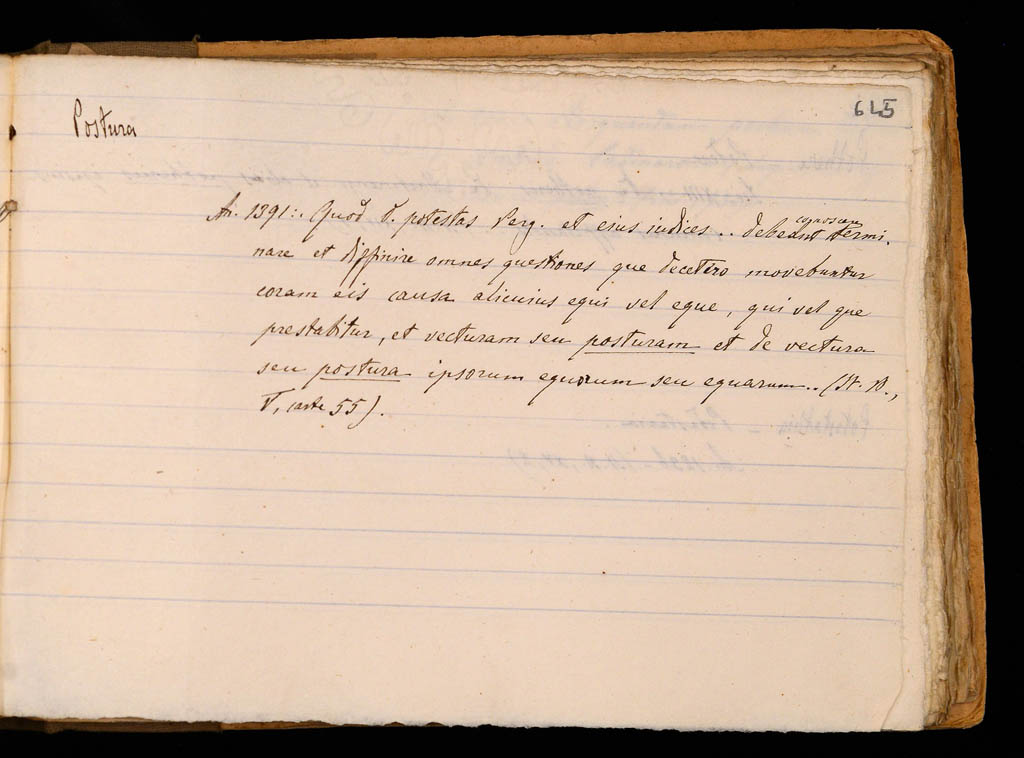 645
Postura
An. 1391: Quod D. potestas Perg. et eius iudices .. debeant cognoscere termi-
nare et diffinire omnes questiones que decetero movebuntur
coram eis causa alicuius equi vel eque, qui vel que
prestabitur, et vecturam seu posturam et de vectura
seu postura ipsorum equorum seu equarum .. (St. B.,
V, carte 55).